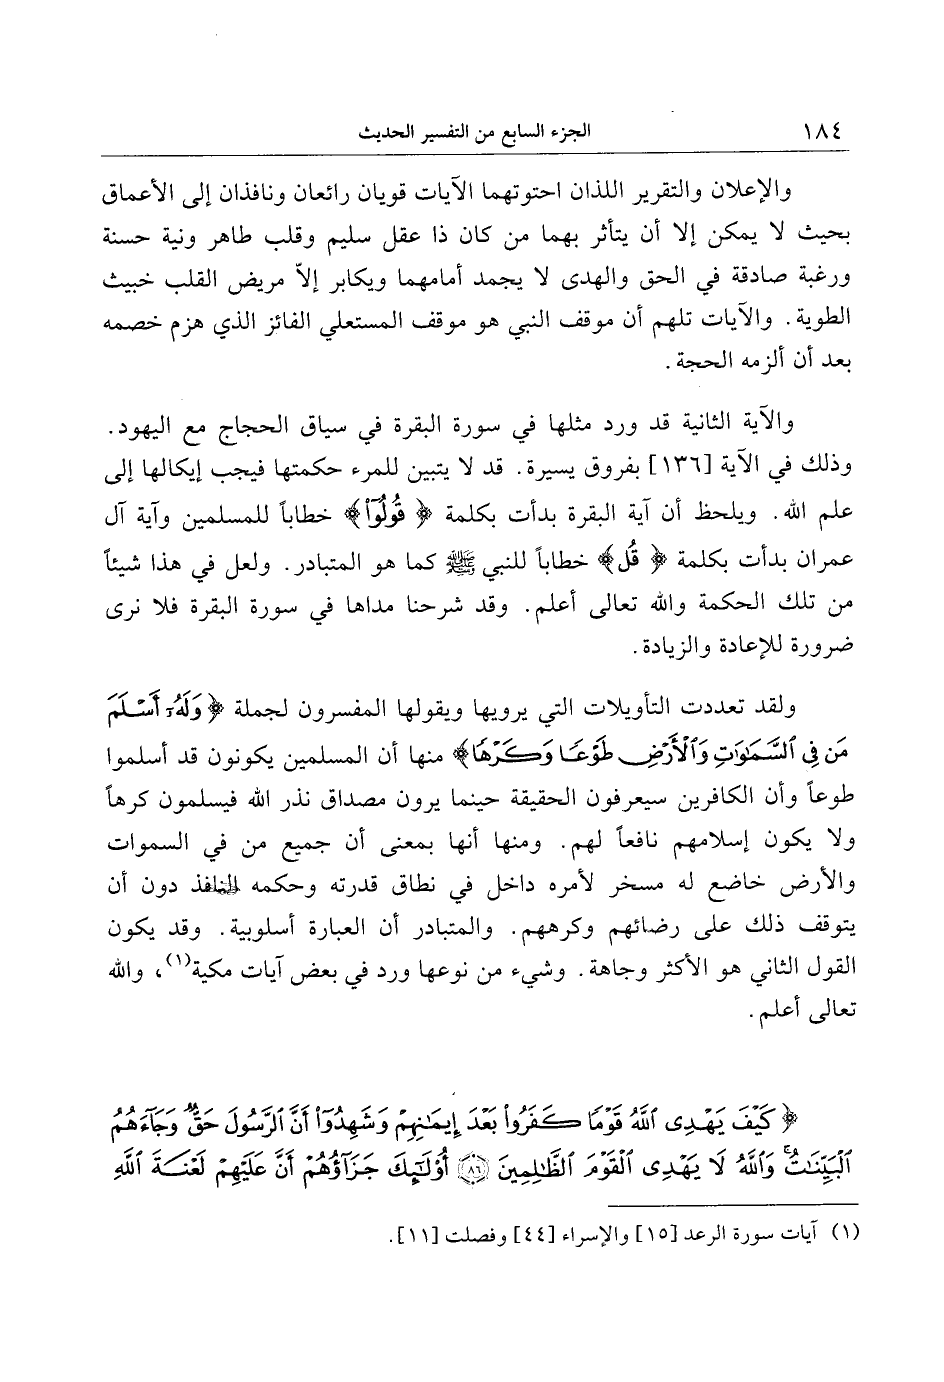 ١٨٤ الجزء السابع من التفسير الحديث
والإعلان والتقرير اللذان احتوتهما الآيات قويان رائعان ونافذان إلى الأعماق
بحيث لا يمكن إلا أن يتأثر بهما من كان ذا عقل سليم وقلب طاهر ونية حسنة
ورغبة صادقة في الحق والهدى لا يجمد أمامهما ويكابر إلاّ مريض القلب خبيث
الطوية. والآيات تلهم أن موقف النبي هو موقف المستعلي الفائز الذي هزم خصمه
بعد أن ألزمه الحجة.
والآية الثانية قد ورد مثلها في سورة البقرة في سياق الحجاج مع اليهود.
وذلك في الآية [١٣٦] بفروق يسيرة. قد لا يتبين للمرء حكمتها فيجب إيكالها إلى
علم الله. ويلحظ أن آية البقرة بدأت بكلمة ﴿ قُولُوٓاْ﴾ خطاباً للمسلمين وآية آل
عمران بدأت بكلمة ﴿ قُل﴾ خطاباً للنبي ﷺ كما هو المتبادر. ولعل في هذا شيئاً
من تلك الحكمة والله تعالى أعلم. وقد شرحنا مداها في سورة البقرة فلا نرى
ضرورة للإعادة والزيادة.
ولقد تعددت التأويلات التي يرويها ويقولها المفسرون لجملة ﴿ وَلَهُۥٓ أَسْلَمَ
مَن فِي ٱلسَّمَٰوَٰتِ وَٱلْأَرْضِ طَوْعًا وَكَرْهًا﴾ منها أن المسلمين يكونون قد أسلموا
طوعاً وأن الكافرين سيعرفون الحقيقة حينما يرون مصداق نذر الله فيسلمون كرهاً
ولا يكون إسلامهم نافعاً لهم. ومنها أنها بمعنى أن جميع من في السموات
والأرض خاضع له مسخر لأمره داخل في نطاق قدرته وحكمه النافذ دون أن
يتوقف ذلك على رضائهم وكرههم. والمتبادر أن العبارة أسلوبية. وقد يكون
القول الثاني هو الأكثر وجاهة. وشيء من نوعها ورد في بعض آيات مكية(١)، والله
تعالى أعلم.
﴿ كَيْفَ يَهْدِى ٱللَّهُ قَوْمًا كَفَرُواْ بَعْدَ إِيمَٰنِهِمْ وَشَهِدُوٓاْ أَنَّ ٱلرَّسُولَ حَقٌّ وَجَآءَهُمُ
ٱلْبَيِّنَٰتُۚ وَٱللَّهُ لَا يَهْدِى ٱلْقَوْمَ ٱلظَّٰلِمِينَ ﴿٨٦﴾ أُوْلَٰٓئِكَ جَزَآؤُهُمْ أَنَّ عَلَيْهِمْ لَعْنَةَ ٱللَّهِ
(١) آيات سورة الرعد [١٥] والإسراء [٤٤] وفصلت [١١].